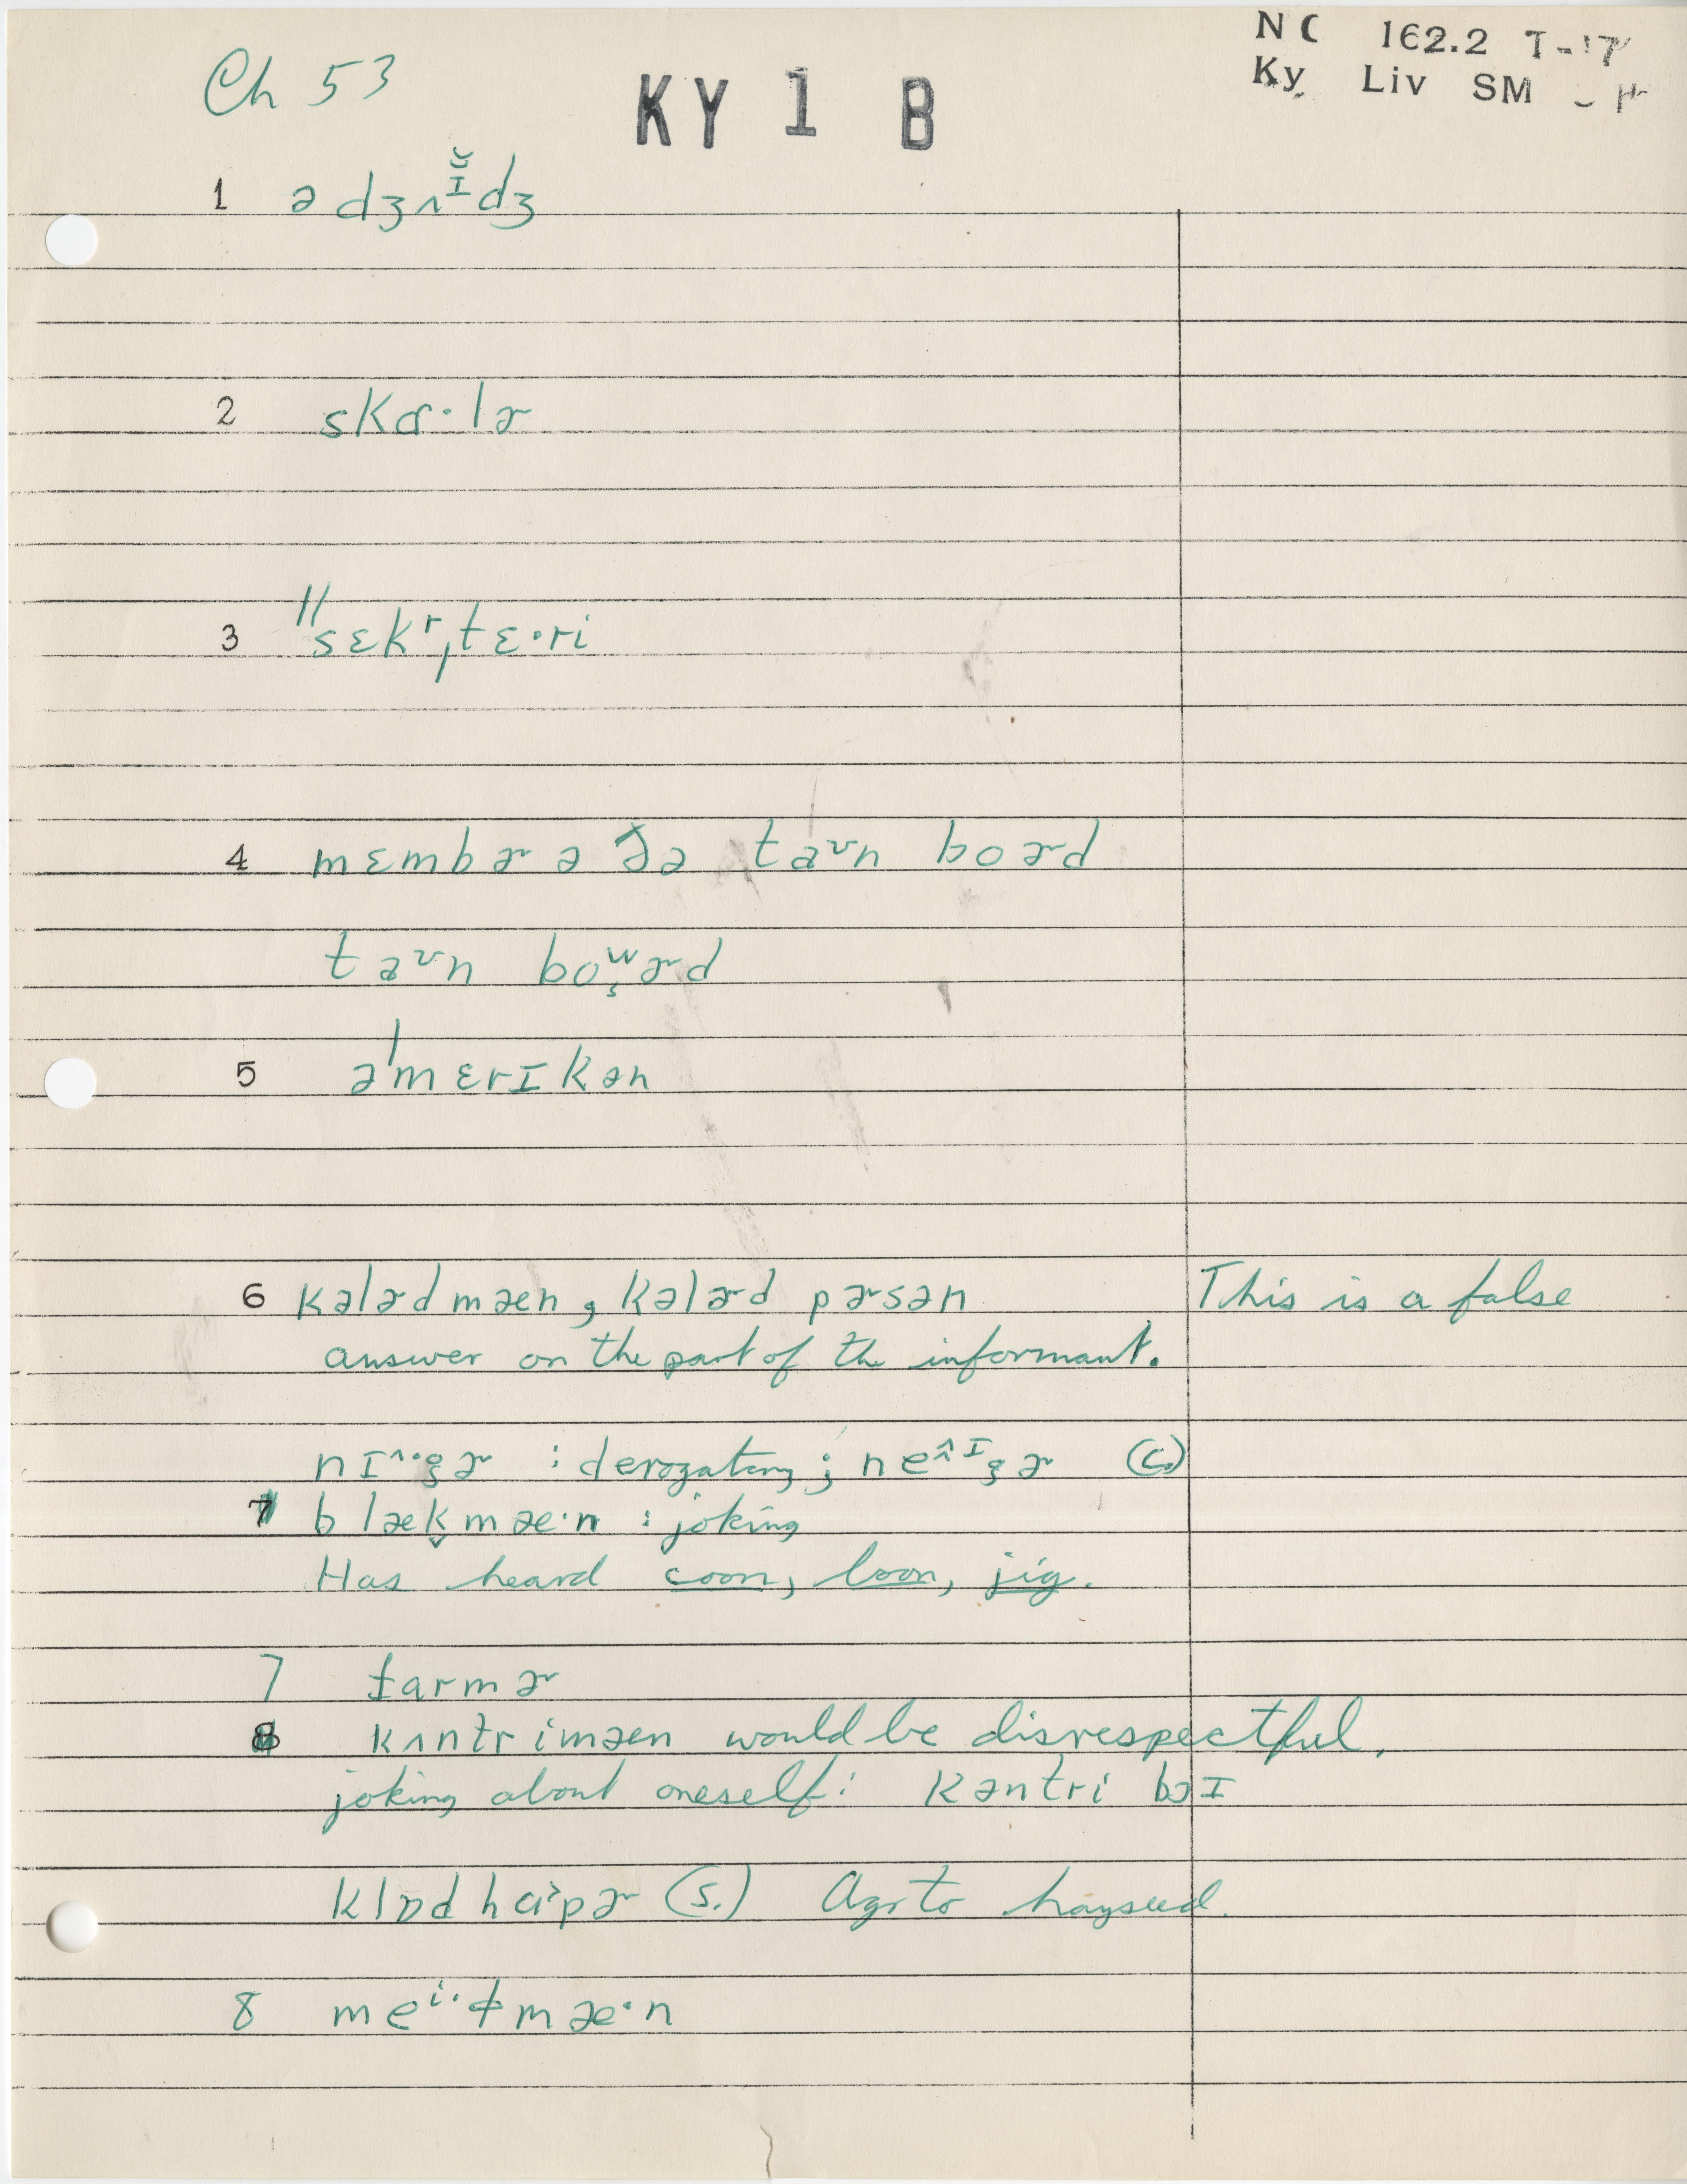 NC 162.2
Ky Liv SM
Ch 53
KY 1 B
1 ə dʒʌɪ̆dʒ
2 skɑ·lɚ
3 "sɛkʳˌtɛ·ri
4 mɛmbɚ ə ðə taʊn boɚd
taʊn boʷɚd
5 ə'mɛrɪkən
6 kələdmæn, kələd pɚsən This is a false
answer on the part of the informant.
nɪ^·gɚ : derogatory; ne^ɪgɚ (c.)
7 blækmæ·n : joking
Has heard coon, loon, jig.
7 farmɚ
8 kʌntrimæn would be disrespectful,
joking about oneself: kəntri bɔɪ
klɒdhɑpɚ (s.) Agrto hayseed.
8 meⁱ·ɫmæ·n